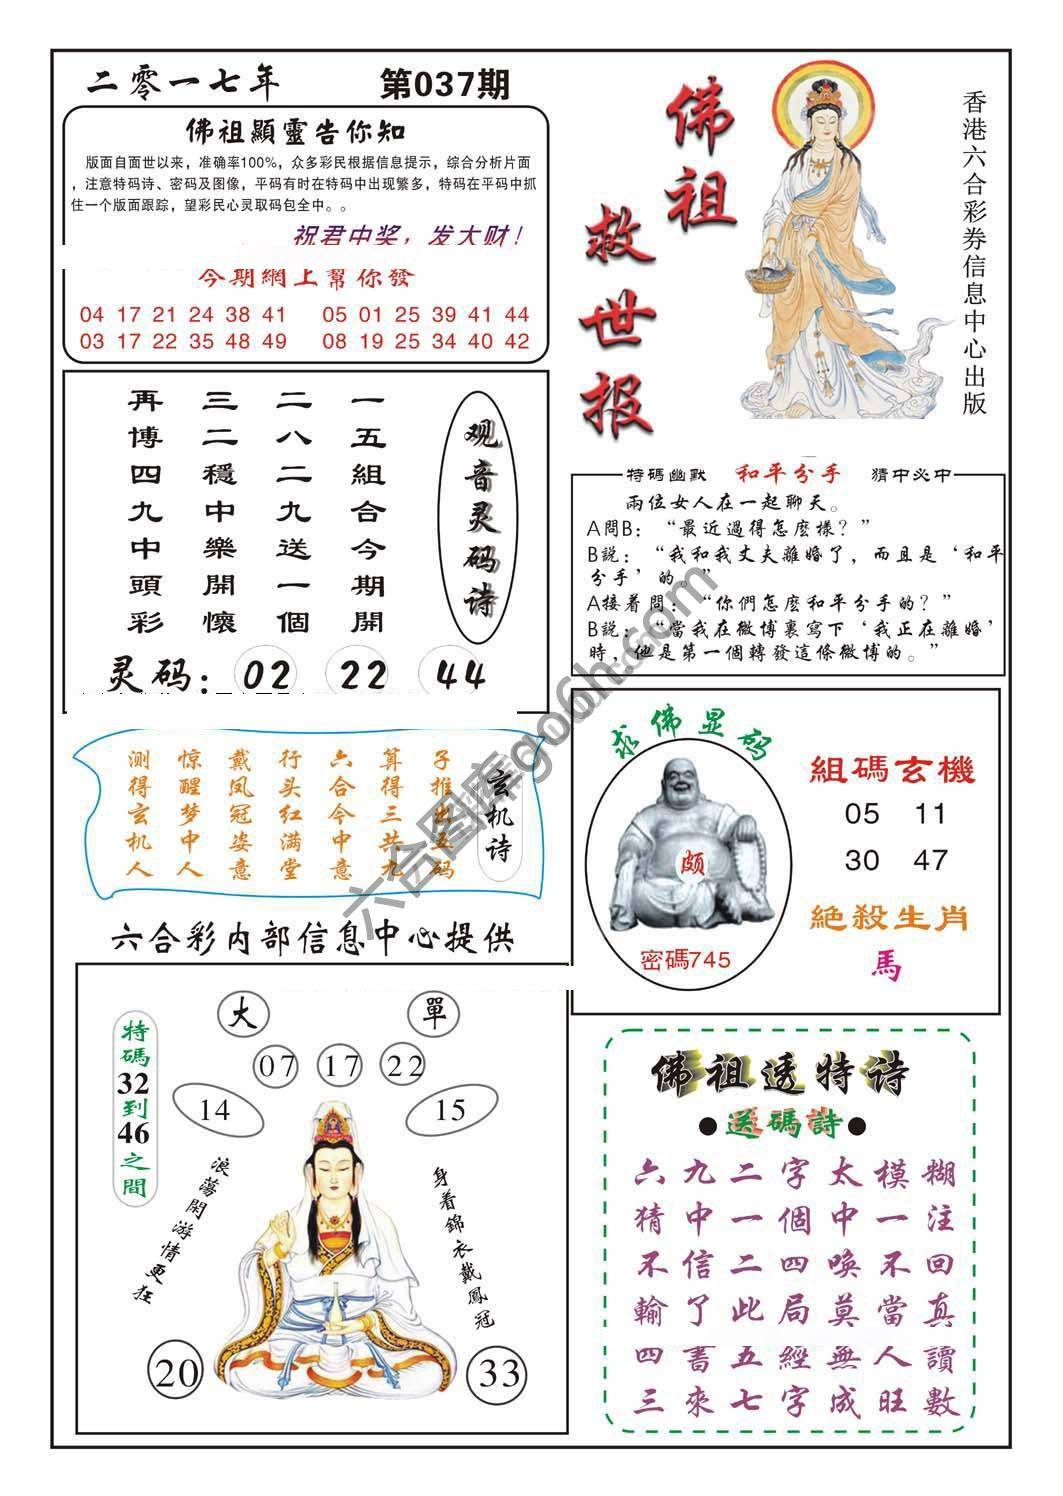 二零一七年 第037期
佛祖顯靈告你知
版面自面世以来，准确率100%，众多彩民根据信息提示，综合分析片面
，注意特码诗、密码及图像，平码有时在特码中出现繁多，特码在平码中抓
住一个版面跟踪，望彩民心灵取码包全中。。
祝君中奖，发大财！
今期網上幫你發
04 17 21 24 38 41 05 01 25 39 41 44
03 17 22 35 48 49 08 19 25 34 40 42
佛祖救世报
香港六合彩券信息中心出版
观音灵码诗
一五組合今期開
二八二九送一個
三二穩中樂開懷
再博四九中頭彩
灵码：02 22 44
特碼幽默 和平分手 猜中必中
兩位女人在一起聊天。
A問B：“最近過得怎麽樣？”
B説：“我和我丈夫離婚了，而且是‘和平
分手’的。”
A接着問：“你們怎麽和平分手的？”
B説：“當我在微博裏寫下‘我正在離婚’
時，他是第一個轉發這條微博的。”
玄机诗
子推出五码
算得三共九
六合今中意
行头红满堂
戴凤冠姿意
惊醒梦中人
测得玄机人
求佛显码
颇
密碼745
組碼玄機
05 11
30 47
絶殺生肖
馬
六合彩内部信息中心提供
大 單
07 17 22
14 15
特碼32到46之間
浪蕩閑游情更狂
身着錦衣戴鳳冠
20 33
佛祖透特诗
●送碼詩●
六九二字太模糊
猜中一個中一注
不信二四喚不回
輸了此局莫當真
四書五經無人讀
三來七字成旺數
六合图库go6h.com